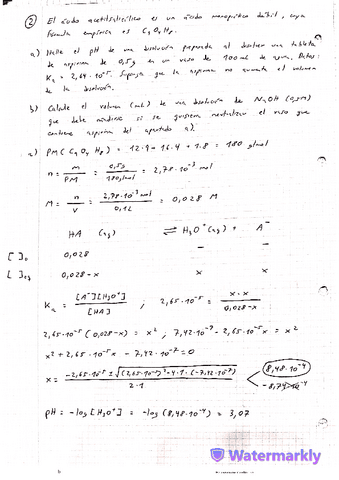 ② El ácido acetilsalicílico es un ácido monoprótico débil, cuya
fórmula empírica es C₉O₄H₈.
a) Halle el pH de una disolución preparada al disolver una tableta
de aspirina de 0,5g en un vaso de 100 mL de agua. Datos:
Ka = 2,64·10⁻⁵. Suponga que la aspirina no aumenta el volumen
de la disolución.
b) Calcule el volumen (mL) de una disolución de NaOH (0,3M)
que debe añadirse si se quisiera neutralizar el vaso que
contiene aspirina del apartado a).
a) PM (C₉ O₄ H₈) = 12·9 + 16·4 + 1·8 = 180 g/mol
n = m/PM = 0,5g/180 g/mol = 2,78·10⁻³ mol
M = n/V = 2,78·10⁻³ mol/0,1L = 0,028 M
HA (aq) ⇌ H₃O⁺(aq) + A⁻
[ ]₀ 0,028 — —
[ ]eq 0,028-x x x
Ka = [A⁻][H₃O⁺]/[HA] ; 2,65·10⁻⁵ = x·x/0,028-x
2,65·10⁻⁵ (0,028-x) = x² ; 7,42·10⁻⁷ - 2,65·10⁻⁵x = x²
x² + 2,65·10⁻⁵x - 7,42·10⁻⁷ = 0
x = -2,65·10⁻⁵ ± √((2,65·10⁻⁵)² - 4·1·(-7,42·10⁻⁷))/2·1 8,48·10⁻⁴
-8,74·10⁻⁴
pH = -log [H₃O⁺] = -log (8,48·10⁻⁴) = 3,07
Watermarkly